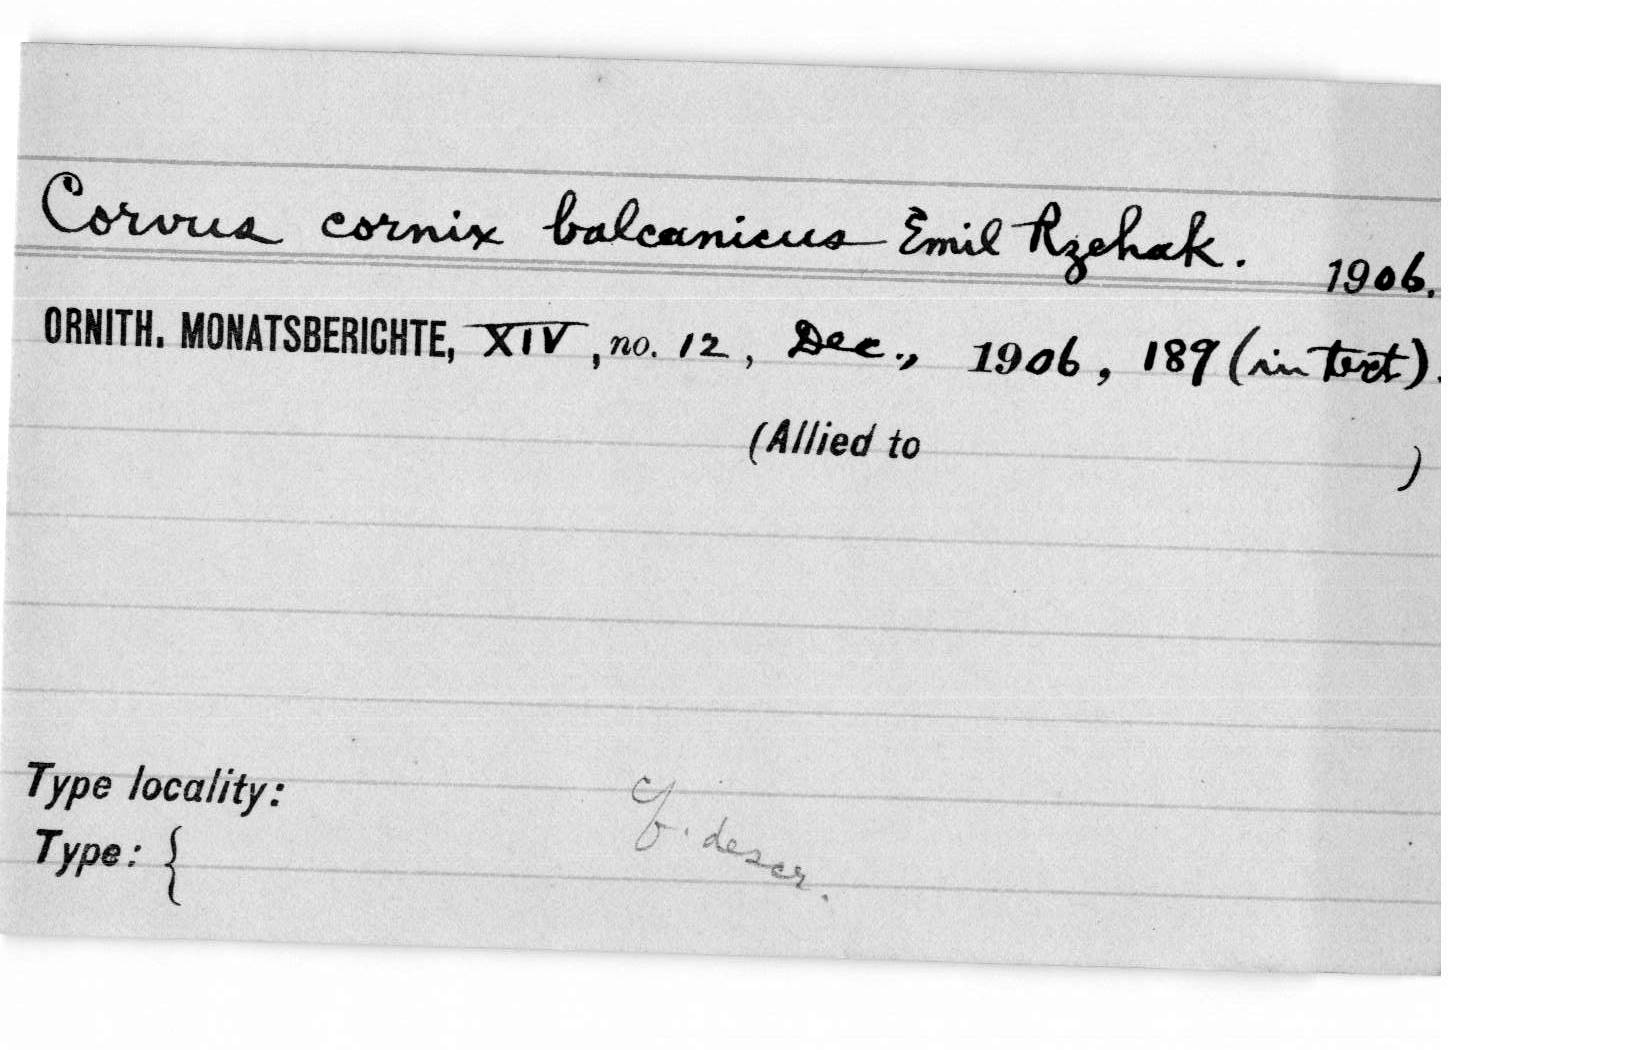 Corvus cornix balcanicus Emil Rzehak. 1906.
ORNITH. MONATSBERICHTE, XIV, no. 12, Dec., 1906, 189 (in text).
(Allied to )
Type locality:
Type: {
cf. descr.